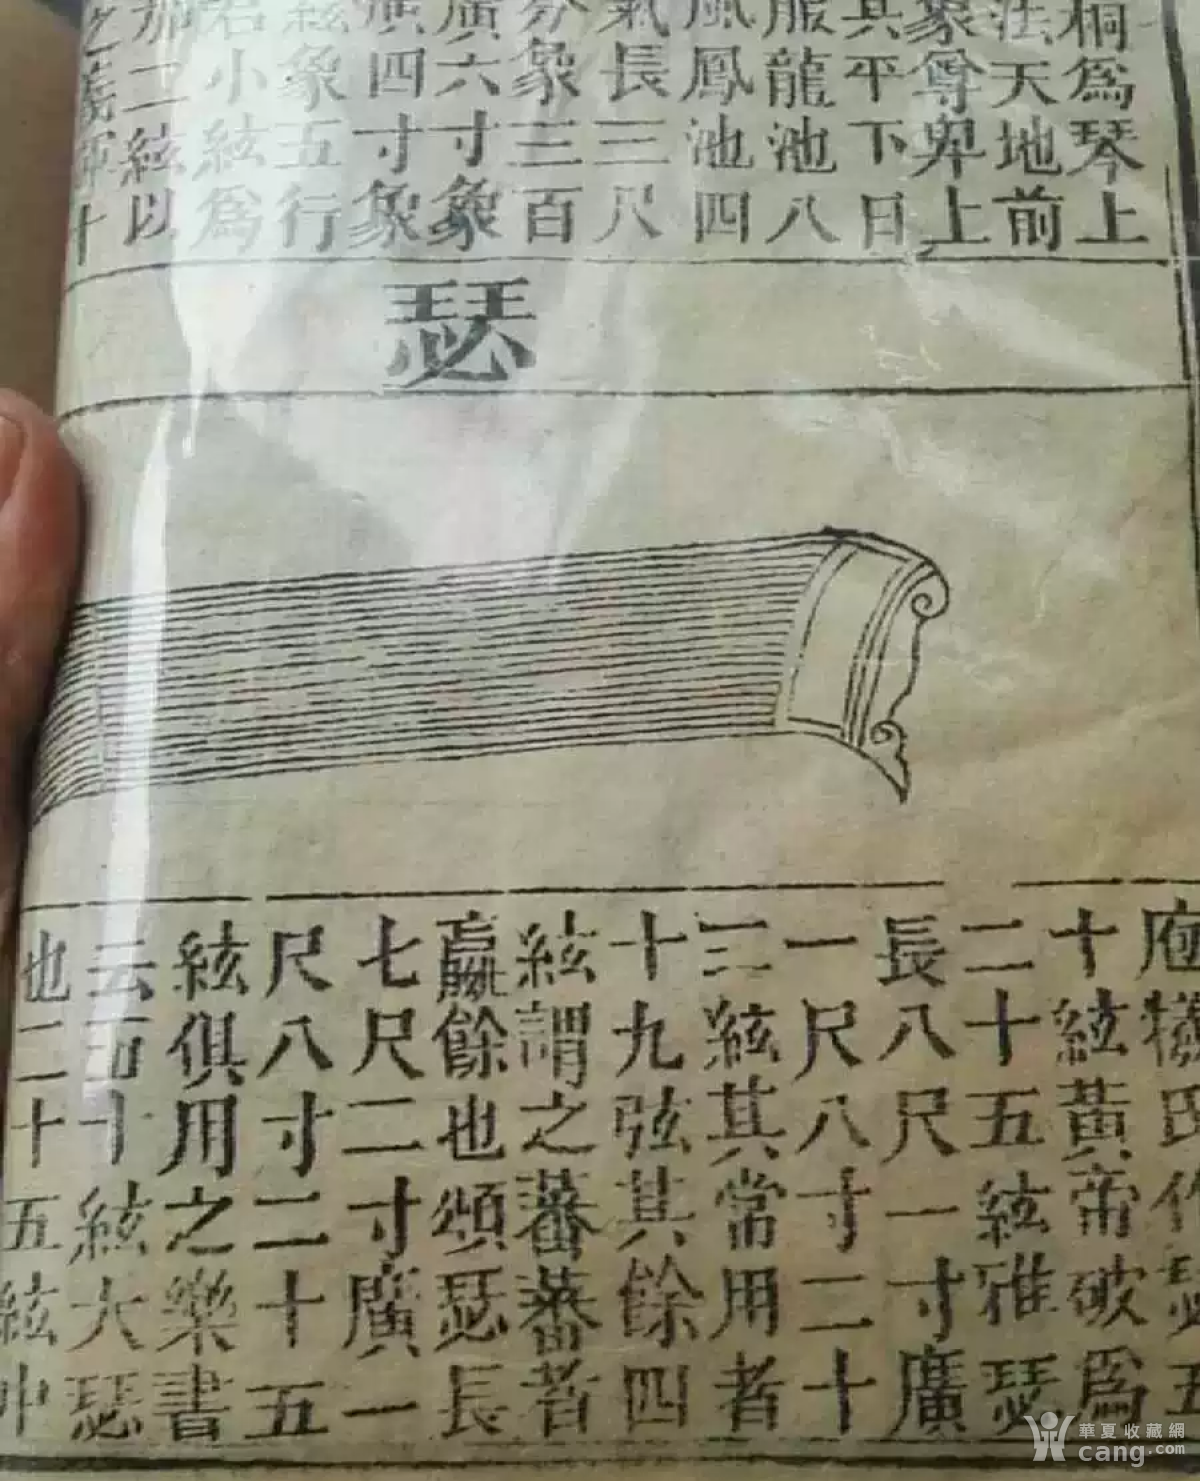 桐爲琴上
法天地前
象尊卑上
其平下曰
服龍池八
風鳳池四
氣長三尺
分象三百
廣六寸象
廣四寸象
絃象五行
若小絃爲
加二絃以
之 十
瑟
庖犧氏作瑟五
十絃黃帝破爲
二十五絃雅瑟
長八尺一寸廣
一尺八寸二十
三絃其常用者
十九弦其餘四
絃謂之蕃蕃者
贏餘也頌瑟長
七尺二寸廣一
尺八寸二十五
絃俱用之樂書
云五十絃大瑟
也二十五絃中
華夏收藏網
cang.com